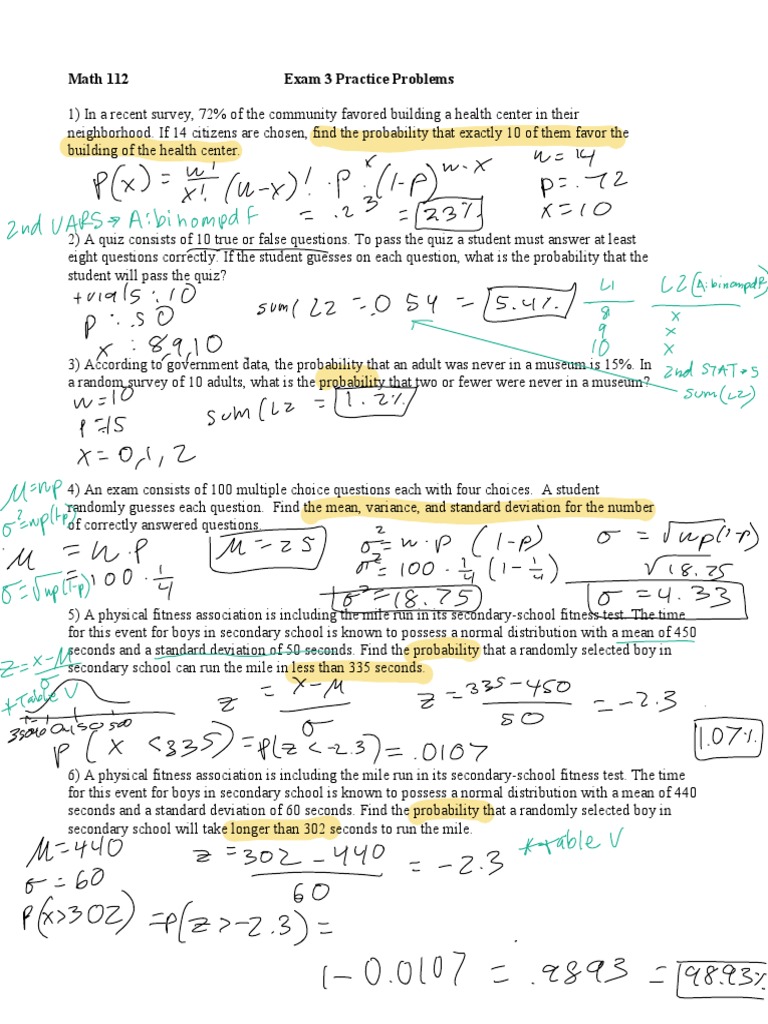 Math 112 Exam 3 Practice Problems
1) In a recent survey, 72% of the community favored building a health center in their
neighborhood. If 14 citizens are chosen, find the probability that exactly 10 of them favor the
building of the health center.
n=14
P(x) = n! / x! (n-x)! · p^x · (1-p)^n-x
p=.72
= .23 = 23%
x=10
2nd VARS → A:binompdf
2) A quiz consists of 10 true or false questions. To pass the quiz a student must answer at least
eight questions correctly. If the student guesses on each question, what is the probability that the
student will pass the quiz?
trials : 10
p : .50
x : 8,9,10
sum(L2 = .054 = 5.4%
L1 L2(A:binompdf)
8 x
9 x
10 x
3) According to government data, the probability that an adult was never in a museum is 15%. In
a random survey of 10 adults, what is the probability that two or fewer were never in a museum?
2nd STAT → 5
sum(L2)
n=10
p=15
x=0,1,2
sum(L2 = 1.2%
4) An exam consists of 100 multiple choice questions each with four choices. A student
randomly guesses each question. Find the mean, variance, and standard deviation for the number
of correctly answered questions.
M=np
σ²=np(1-p)
σ=√np(1-p)
M = n·p
= 100 · 1/4
M=25
σ²= n·p (1-p)
σ²= 100 · 1/4 (1-1/4)
σ²=18.75
σ = √np(1-p)
√18.75
σ = 4.33
5) A physical fitness association is including the mile run in its secondary-school fitness test. The time
for this event for boys in secondary school is known to possess a normal distribution with a mean of 450
seconds and a standard deviation of 50 seconds. Find the probability that a randomly selected boy in
secondary school can run the mile in less than 335 seconds.
z = x-M / σ
*Table V
z = x-M / σ
z = 335-450 / 50 = -2.3
P(x<335)=P(z<-2.3)=.0107
1.07%
6) A physical fitness association is including the mile run in its secondary-school fitness test. The time
for this event for boys in secondary school is known to possess a normal distribution with a mean of 440
seconds and a standard deviation of 60 seconds. Find the probability that a randomly selected boy in
secondary school will take longer than 302 seconds to run the mile.
M=440
σ=60
z = 302-440 / 60 = -2.3
*table V
P(x>302) =P(z>-2.3)=
1-0.0107 = .9893 = 98.93%